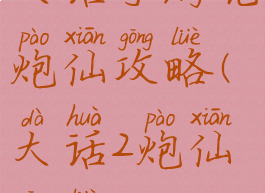 pào xiān gōng lüè
炮仙攻略(
dà huà pào xiān
大话2炮仙